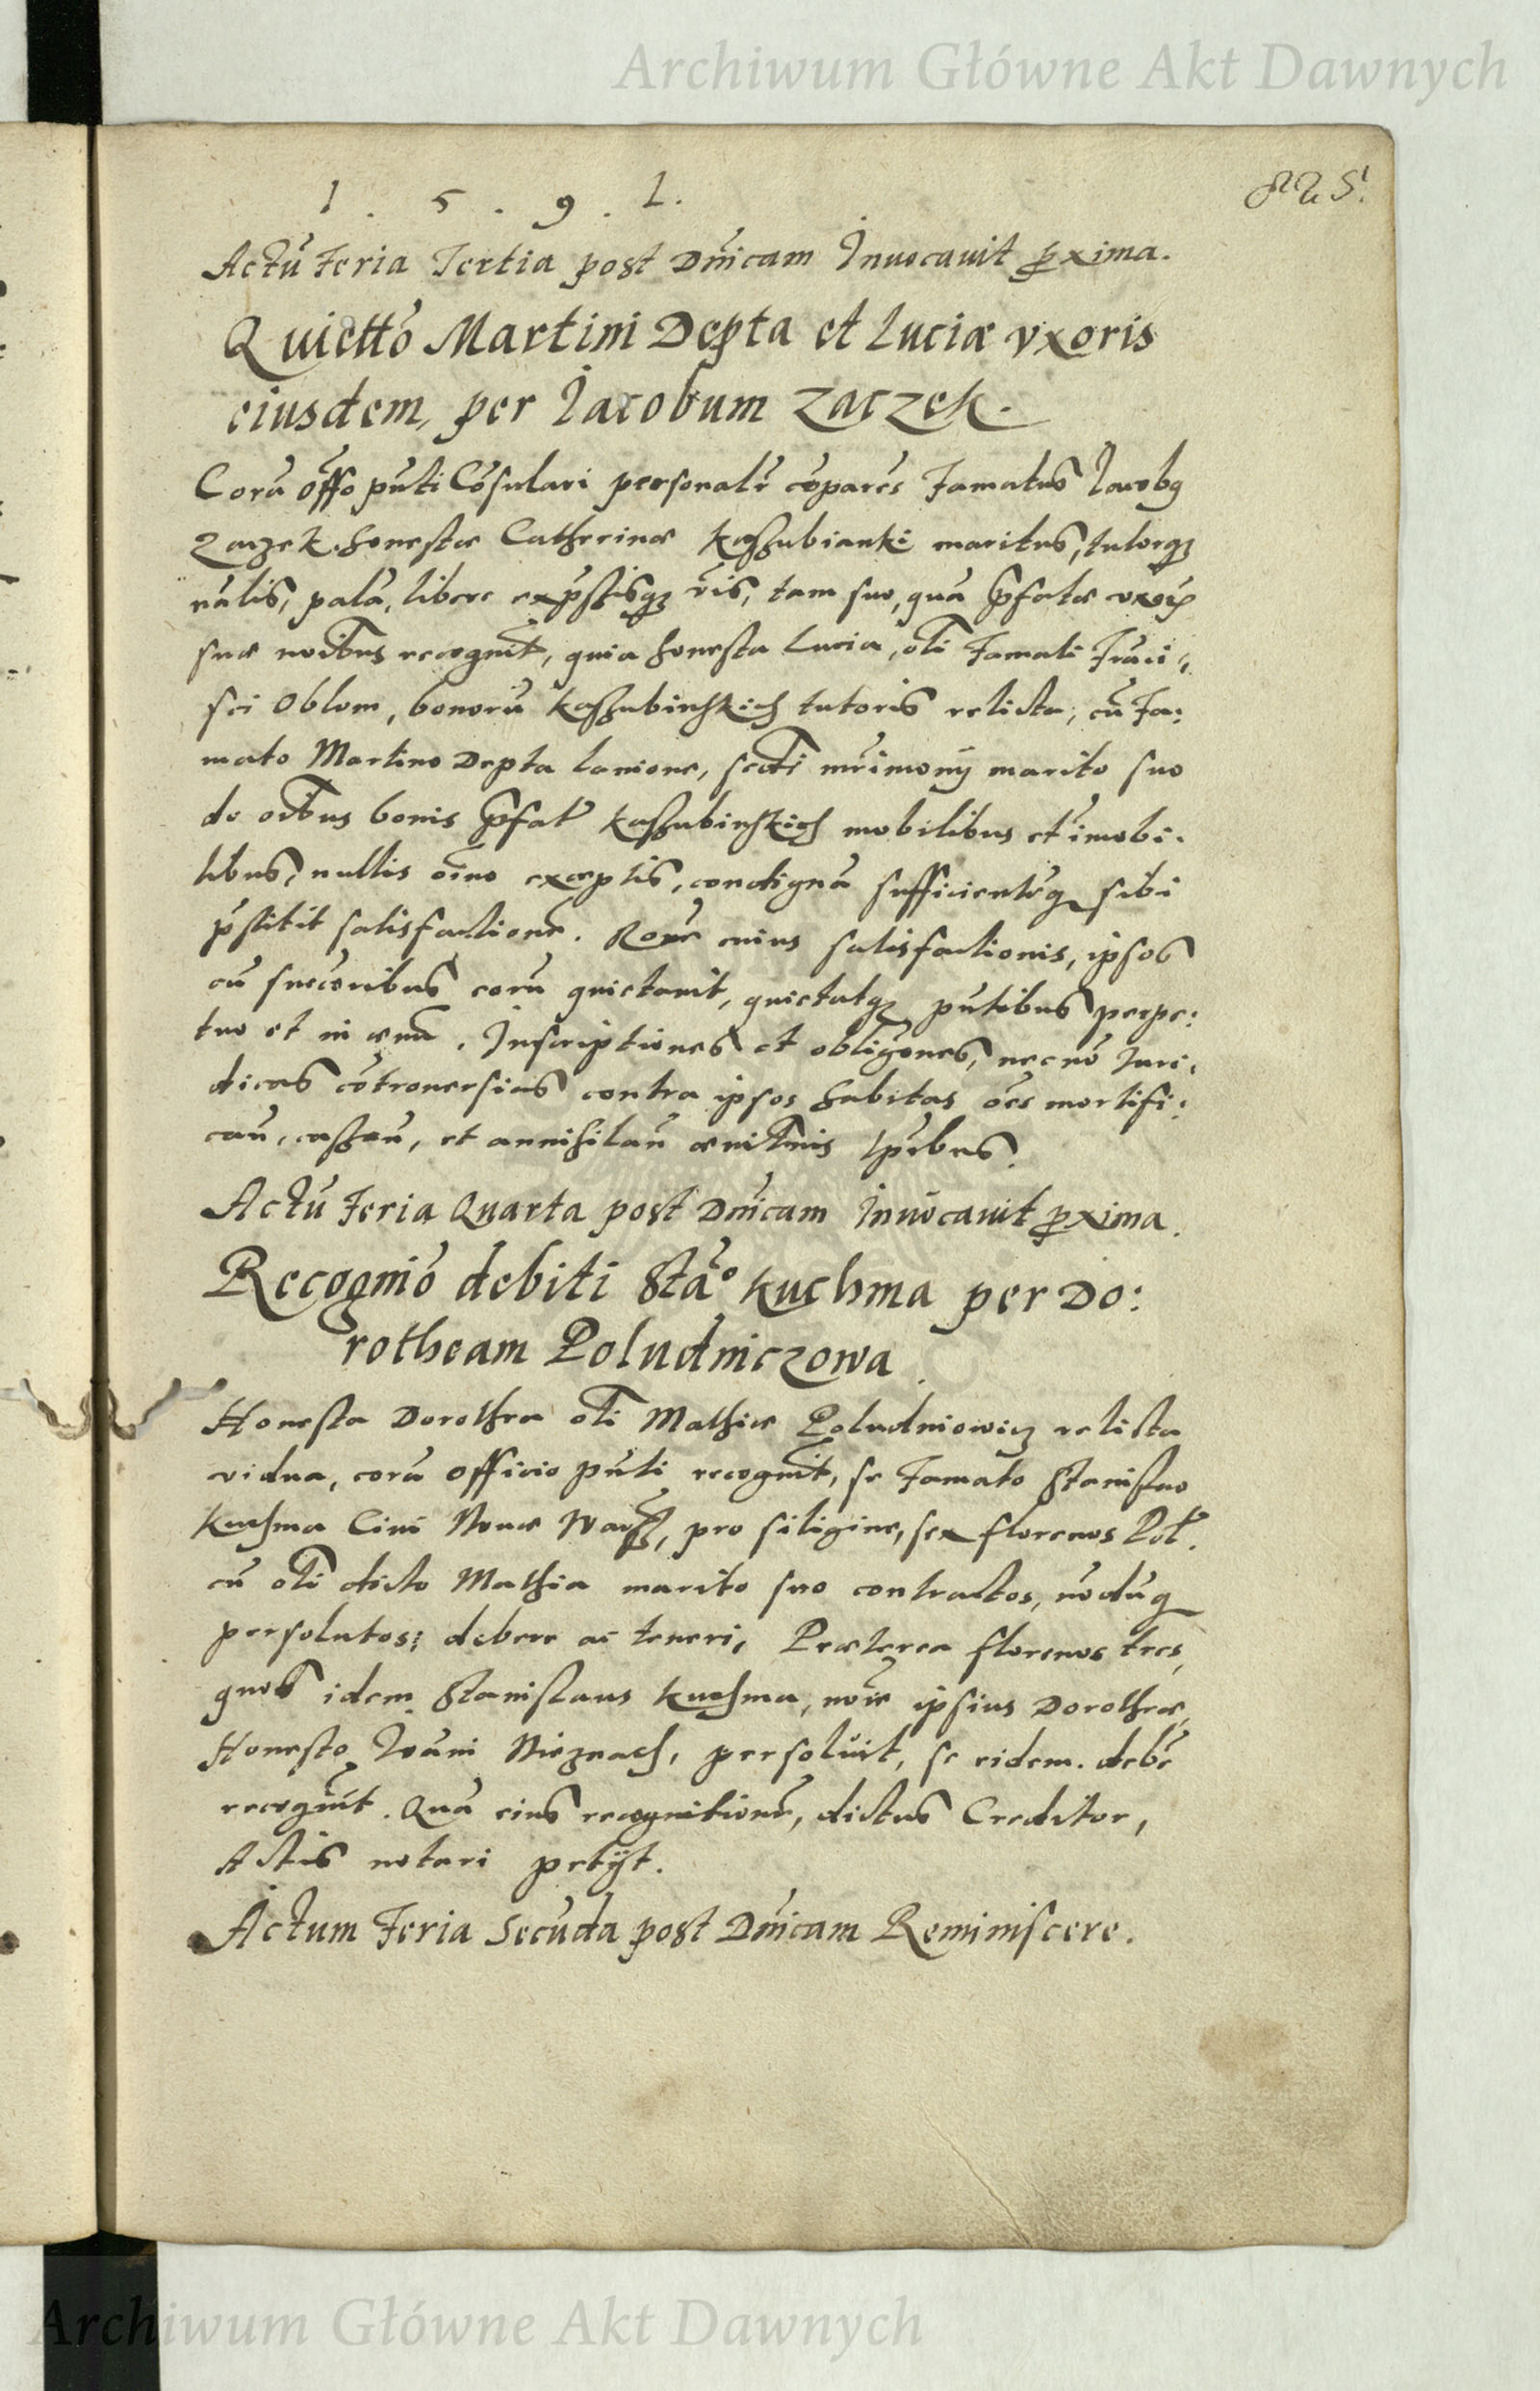 Archiwum Główne Akt Dawnych
1 . 5 . 9 . 1.
Actū Feria Tertia post Dnicam Inuocauit ꝓxima.
Quiettō Martini Depta et Luciæ vxoris
eiusdem, per Iacobum Zaczek.
Corā offo pnti Cōsulari personalr cōparēs Famatus Iacobꝯ
Zaczek honestæ Catherinæ Kaszubianki maritus, tutorqꝫ
nālis, palā, libere expssisqꝫ vis, tam suo, quā pfatæ vxoris
suæ noibus recognit, quia honesta Lucia, oli Famati Frāci,
sci Oblom, bonorū Kaszubinskich tutoris relicta, cū Fa:
mato Martino Depta lanione, scdi mrimonij marito suo
de oibus bonis pfat Kaszubinskich mobilibus et imobi.
libus, nullis oīno exceptis, condignā sufficientēqꝫ sibi
pstitit satisfactionē. Rone cuius satisfactionis, ipsos
cū succoribus eorū quietauit, quietatqꝫ pntibus perpe:
tuo et in æuū. Inscriptiones et obligōnes, necnō Iuri,
dicas cōtrouersias contra ipsos habitas oēs mortifi:
cau, cassau, et annihilau æuitnis tpribus.
Actū Feria Quarta post Dnicam Inuocauit ꝓxima.
Recognió debiti Stāo Kuchma per Do:
rotheam Poludniczowa
Honesta Dorothea oli Mathiæ Poludniowicz relicta
vidua, corā officio pnti recognit, se Famato Stanislao
Kuchma Ciui Nouæ Warsz, pro siligine, sex florenos Pol.
cū oli dicto Mathia marito suo contractos, nōdūqꝫ
persolutos; debere ac teneri, Præterea florenos tres,
quos idem Stanislaus Kuchma, noīe ipsius Dorotheæ,
Honesto Ioāni Nieznach, persoluit, se eidem. debē
recognit. Quā eius recognitionē, dictus Creditor,
Actis notari petijt.
Actum Feria Secūda post Dnicam Reminiscere.
Archiwum Główne Akt Dawnych